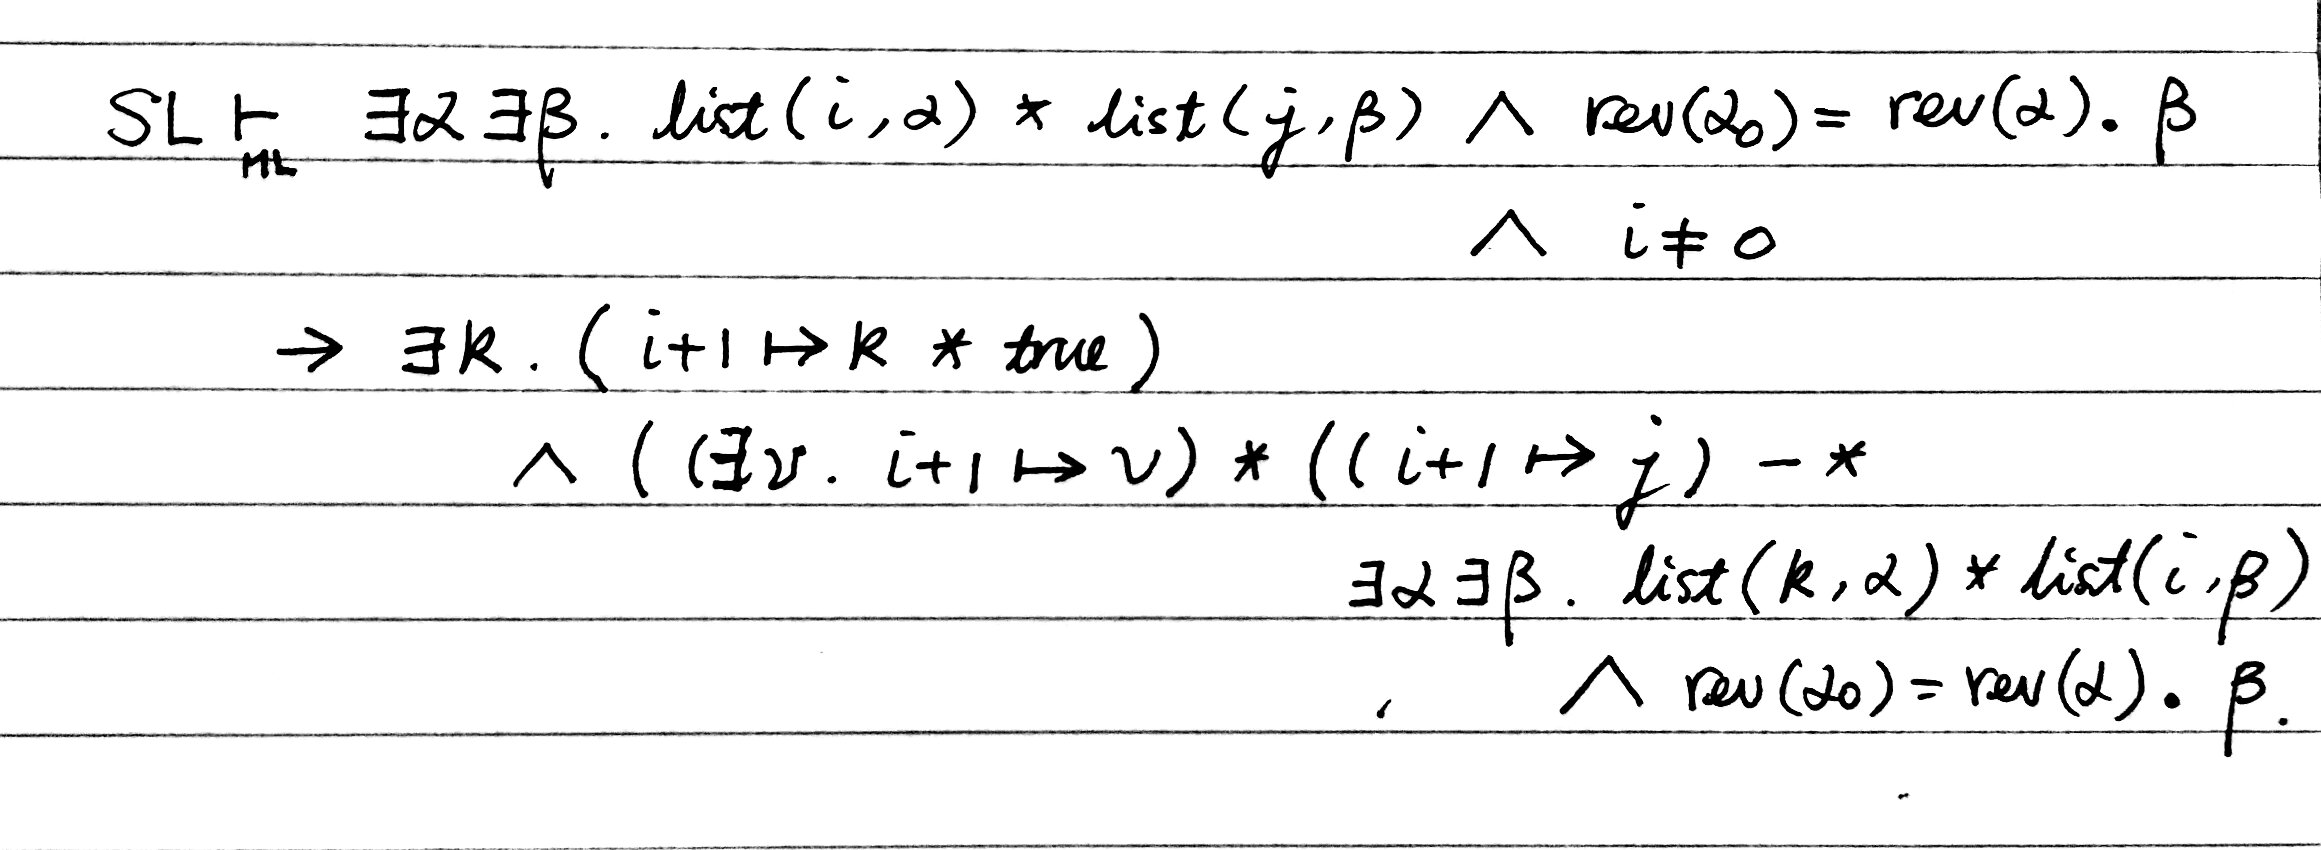 SL ⊢ML ∃α∃β. list(i,α) * list(j,β) ∧ rev(α₀) = rev(α). β
∧ i≠0
→ ∃k. (i+1 ↦ k * true)
∧ ((∃v. i+1 ↦ v) * ((i+1 ↦ j) -*
∃α∃β. list(k,α) * list(i,β)
∧ rev(α₀) = rev(α). β.